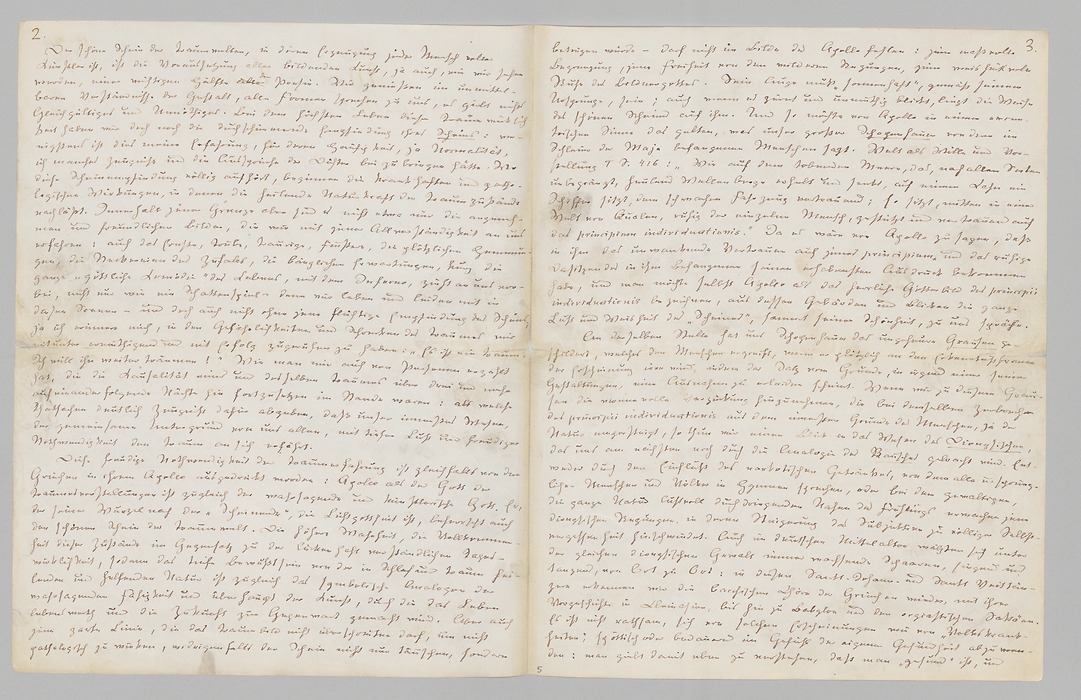 2.
Der schöne Schein der Traumwelten, in deren Erzeugung jeder Mensch voller
Künstler ist, ist die Voraussetzung aller bildenden Kunst, ja auch, wie wir sehen
werden, einer wichtigen Hälfte der Poesie. Wir geniessen im unmittel-
baren Verständnisse der Gestalt, alle Formen sprechen zu uns, es giebt nichts
Gleichgültiges und Unnöthiges. Bei dem höchsten Leben dieser Traumwirklich
keit haben wir doch noch die durchschimmernde Empfindung ihres Scheins: we-
nigstens ist dies meine Erfahrung, für deren Häufigkeit, ja Normalität,
ich manches Zeugniss und die Aussprüche der Dichter beizubringen hätte. Wo
diese Scheinempfindung völlig aufhört, beginnen die krankhaften und patho-
logischen Wirkungen, in denen die heilende Naturkraft der Traumzustände
nachlässt. Innerhalb jener Grenze aber sind es nicht etwa nur die angeneh-
men und freundlichen Bilder, die wir mit jener Allverständigkeit an uns
erfahren: auch das Ernste, Trübe, Traurige, Finstere, die plötzlichen Hemmun-
gen, die Neckereien des Zufalls, die bänglichen Erwartungen, kurz die
ganze „göttliche Komödie" des Lebens, mit dem Inferno, zieht an uns vor-
bei, nicht nur wie ein Schattenspiel – denn wir leben und leiden mit in
diesen Scenen – und doch auch nicht ohne jene flüchtige Empfindung des Scheins;
ja ich erinnere mich, in den Gefährlichkeiten und Schrecken des Traumes mir
mitunter ermuthigend und mit Erfolg zugerufen zu haben: „Es ist ein Traum!
Ich will ihn weiter träumen!" Wie man mir auch von Personen erzählt
hat, die die Kausalität eines und desselben Traumes über drei und mehr
aufeinanderfolgende Nächte hin fortzusetzen im Stande waren: als welche
Thatsachen deutlich Zeugniss dafür abgeben, dass unser innerstes Wesen,
der gemeinsame Untergrund von uns allen, mit tiefer Lust und freudiger
Nothwendigkeit den Traum an sich erfährt.
Diese freudige Nothwendigkeit der Traumerfahrung ist gleichfalls von den
Griechen in ihrem Apollo ausgedrückt worden: Apollo als der Gott der
Traumvorstellungen ist zugleich der wahrsagende und künstlerische Gott. Er,
der seiner Wurzel nach der „Scheinende", die Lichtgottheit ist, beherrscht auch
den schönen Schein der Traumwelt. Die höhere Wahrheit, die Vollkommen-
heit dieser Zustände im Gegensatz zu der lückenhaft verständlichen Tages-
wirklichkeit, sodann das tiefe Bewusstsein von der in Schlaf und Traum hei-
lenden und helfenden Natur ist zugleich das symbolische Analogon der
wahrsagenden Fähigkeit und überhaupt der Kunst, durch die das Leben
lebenswerth und die Zukunft zur Gegenwart gemacht wird. Aber auch
jene zarte Linie, die das Traumbild nicht überschreiten darf, um nicht
pathologisch zu wirken, widrigenfalls der Schein nicht nur täuschen, sondern
3.
betrügen würde – darf nicht im Bilde des Apollo fehlen: jene maassvolle
Begrenzung, jene Freiheit von den wilderen Regungen, jene weisheitsvolle
Ruhe des Bildnergottes. Sein Auge muss „sonnenhaft", gemäss seinem
Ursprunge, sein; auch wenn es zürnt und unmuthig blickt, liegt die Weihe
des schönen Scheines auf ihm. Und so möchte von Apollo in einem excen-
trischen Sinne das gelten, was unser grosser Schopenhauer von dem im
Schleier der Maja befangenen Menschen sagt. Welt als Wille und Vor-
stellung I S. 416: „Wie auf dem tobenden Meere, das, nach allen Seiten
unbegränzt, heulend Wellenberge erhebt und senkt, auf einem Kahn ein
Schiffer sitzt, dem schwachen Fahrzeug vertrauend; so sitzt, mitten in einer
Welt von Qualen, ruhig der einzelne Mensch, gestützt und vertrauend auf
das principium individuationis." Ja es wäre von Apollo zu sagen, dass
in ihm das unwankende Vertrauen auf jenes principium und das ruhige
Dasitzen des in ihm Befangenen seinen erhabensten Ausdruck bekommen
habe, und man möchte selbst Apollo als das herrliche Götterbild des principii
individuationis bezeichnen, aus dessen Gebärden und Blicken die ganze
Lust und Weisheit des „Scheines", sammt seiner Schönheit, zu uns spräche.
An derselben Stelle hat uns Schopenhauer das ungeheure Grausen ge-
schildert, welches den Menschen ergreift, wenn er plötzlich an den Erkenntnissformen
der Erscheinung irre wird, indem der Satz vom Grunde, in irgend einer seiner
Gestaltungen, eine Ausnahme zu erleiden scheint. Wenn wir zu diesem Grau-
sen die wonnevolle Verzückung hinzunehmen, die bei demselben Zerbrechen
des principii individuationis aus dem innersten Grunde des Menschen, ja der
Natur emporsteigt, so thun wir einen Blick in das Wesen des Dionysischen,
das uns am nächsten noch durch die Analogie des Rausches gebracht wird. Ent-
weder durch den Einfluss des narkotischen Getränkes, von dem alle ursprüng-
lichen Menschen und Völker in Hymnen sprechen, oder bei dem gewaltigen,
die ganze Natur lustvoll durchdringenden Nahen des Frühlings erwachen jene
dionysischen Regungen, in deren Steigerung das Subjektive zu völliger Selbst-
vergessenheit hinschwindet. Auch im deutschen Mittelalter wälzten sich unter
der gleichen dionysischen Gewalt immer wachsende Schaaren, singend und
tanzend, von Ort zu Ort: in diesen Sankt-Johann- und Sankt Veittän-
zern erkennen wir die bacchischen Chöre der Griechen wieder, mit ihrer
Vorgeschichte in Kleinasien, bis hin zu Babylon und den orgiastischen Sakäen.
Es ist nicht rathsam, sich von solchen Erscheinungen wie von „Volkskrank-
heiten", spöttisch oder bedauernd im Gefühl der eigenen Gesundheit abzuwen-
den: man giebt damit eben zu verstehen, dass man „gesund" ist, und
5